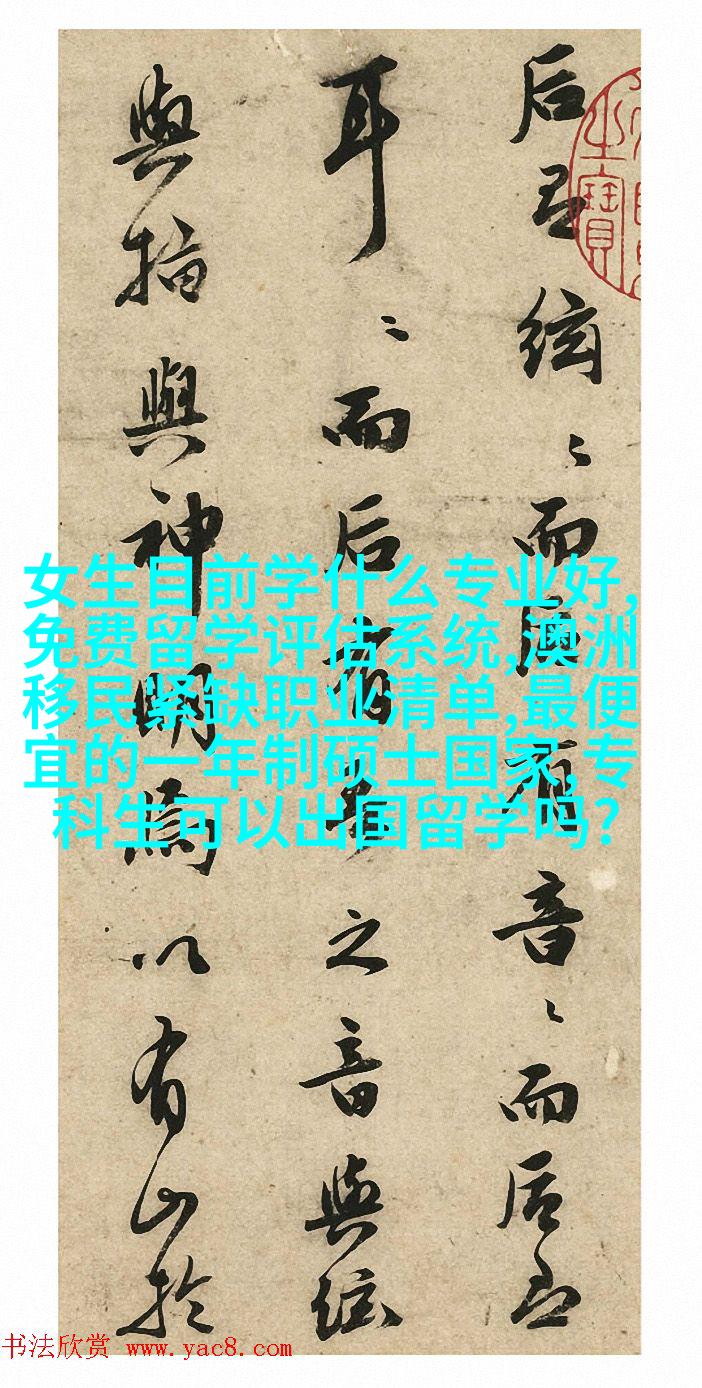 后絃〻而后有音〻而后
耳〻而后之音與絃
與指與神明焉以有山於
之寶
女生目前学什么专业好,
免费留学评估系统,澳洲
移民紧缺职业清单,最便
宜的一年制硕士国家,专
科生可以出国留学吗?
书法欣赏 www.yac8.com